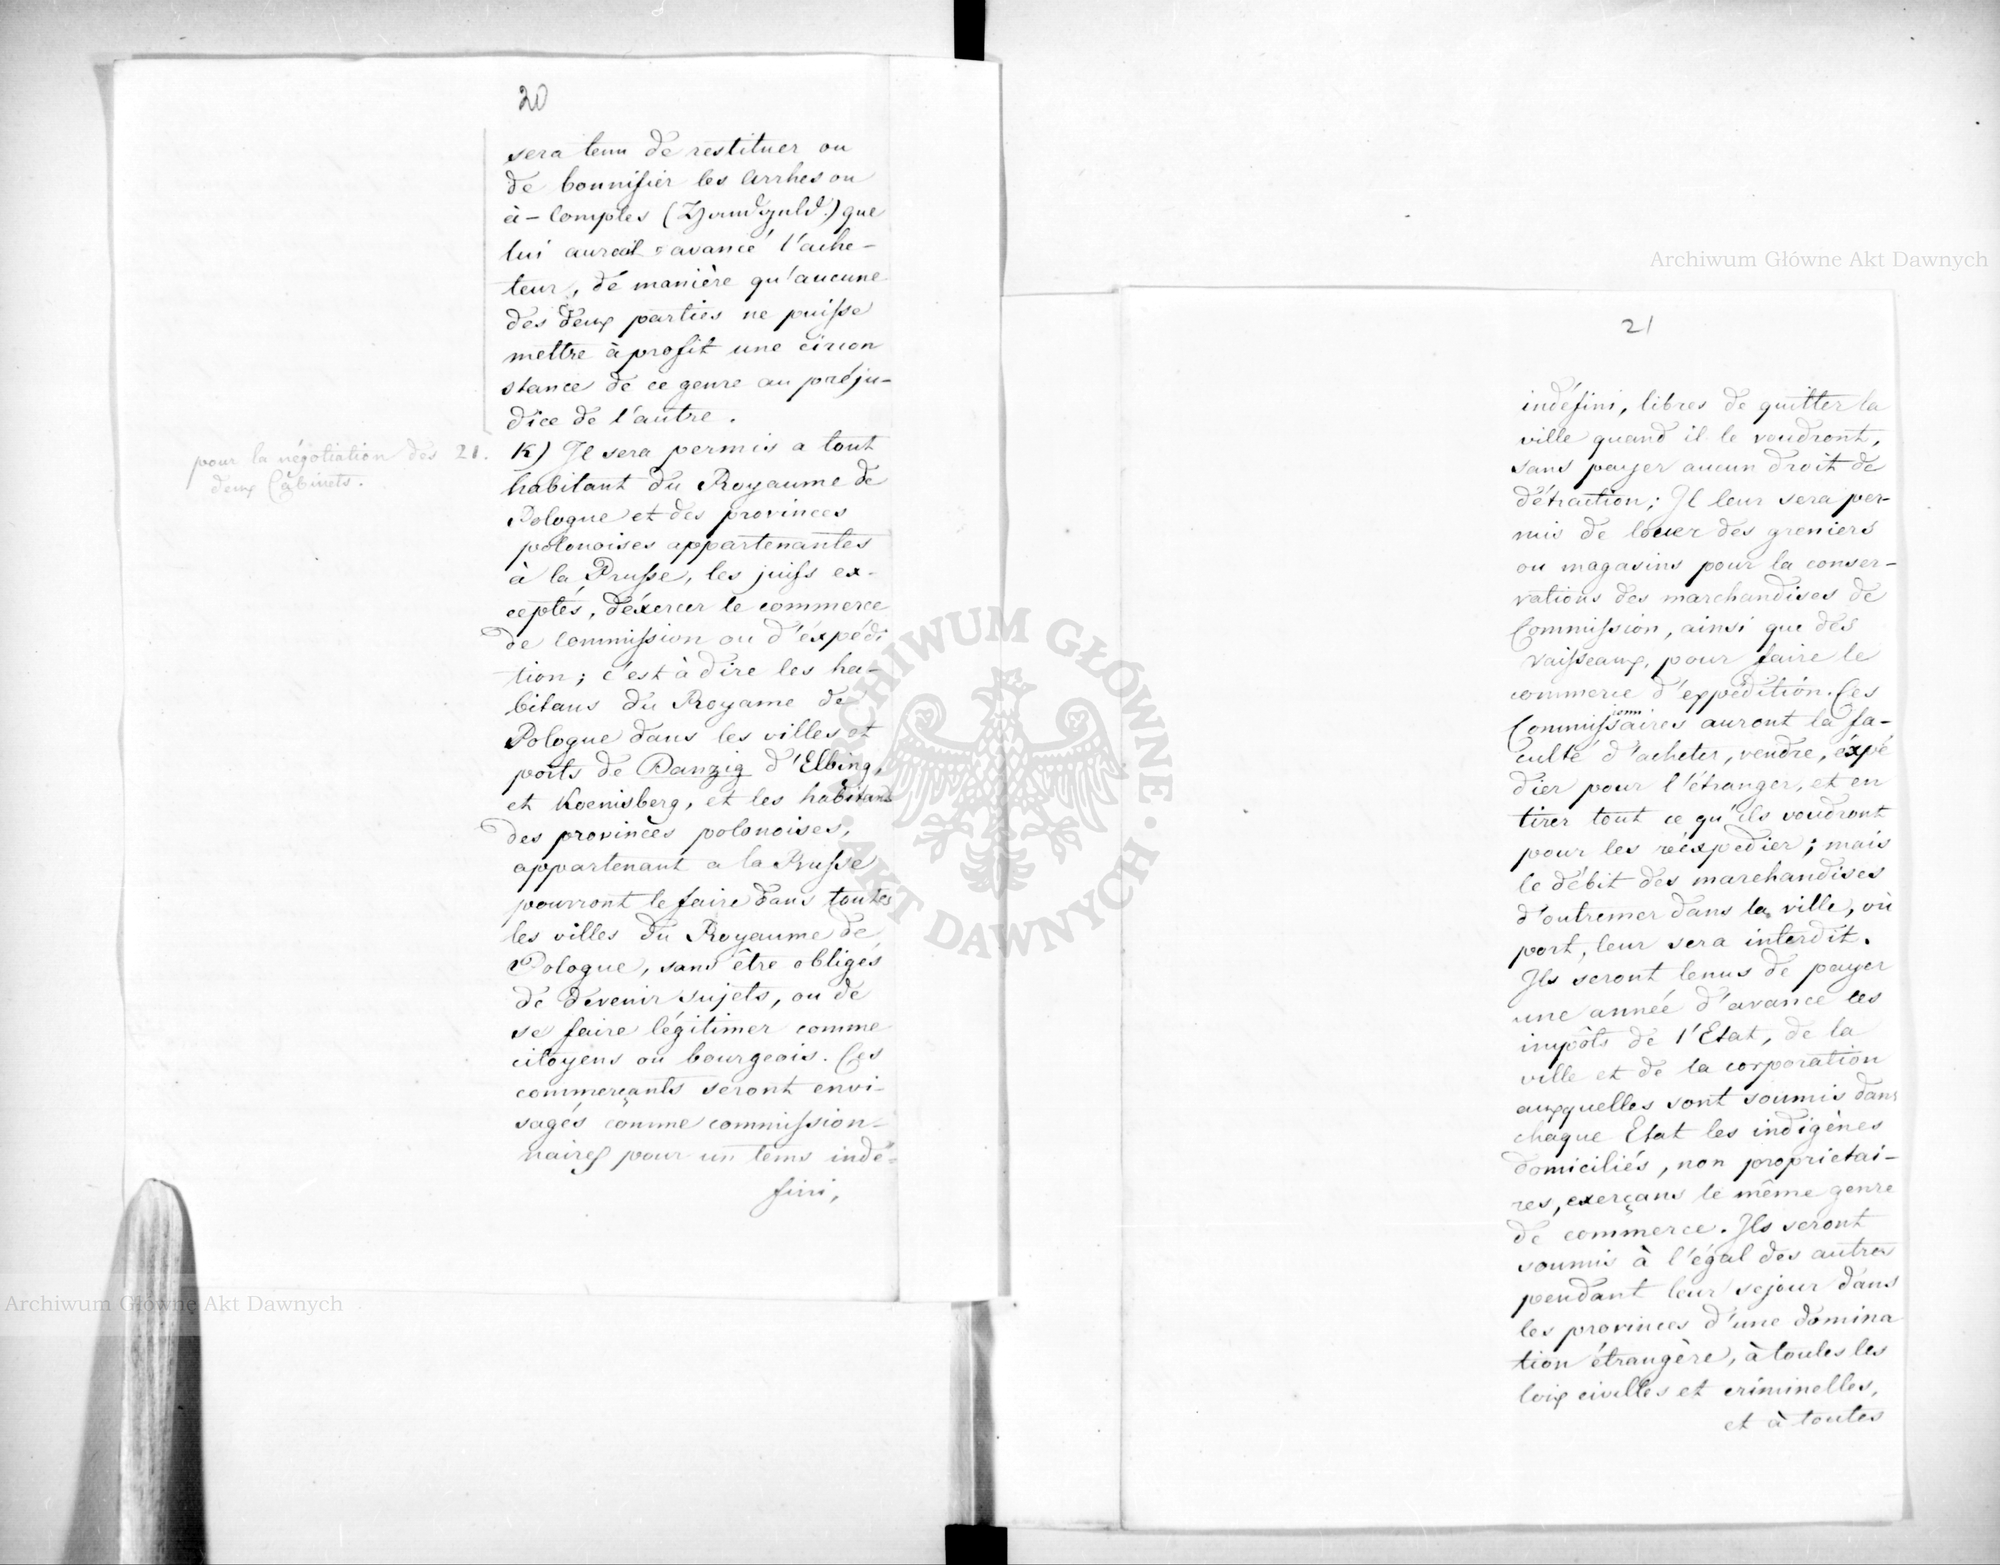 20
sera tenu de restituer ou
de bonnifier les arrhes ou
à-comptes (Handgeld) que
lui auroit avancé l'ache-
teur, de manière qu'aucune
des deux parties ne puisse
mettre à profit une circon
stance de ce genre au préju-
dice de l'autre.
pour la négotiation des 21.
deux Cabinets.
K) Il sera permis a tout
habitant du Royaume de
Pologne et des provinces
polonoises appartenantes
à la Prusse, les juifs ex-
ceptés, d'éxercer le commerce
de commission ou d'éxpédi
tion; c'est à dire les ha-
bitans du Royame de
Pologne dans les villes et
ports de Danzig d'Elbing,
et Koenisberg, et les habitans
des provinces polonoises,
appartenant a la Prusse
pourront le faire dans toutes
les villes du Royaume de
Pologne, sans être obligés
de devenir sujets, ou de
se faire légitimer comme
citoyens ou bourgeois. Ces
commerçants seront envi-
sagés comme commission-
naires pour un tems indé-
fini,
21
indéfini, libres de quitter la
ville quand il le voudront,
sans payer aucun droit de
détraction; Il leur sera per-
mis de louer des greniers
ou magasins pour la conser-
vations des marchandises de
Commission, ainsi que des
vaisseaux, pour faire le
commerce d'expédition. Ces
Commissionnaires auront la fa-
culté d'acheter, vendre, éxpé
dier pour l'étranger, et en
tirer tout ce qu'ils voudront
pour les réexpédier; mais
le débit des marchandises
d'outremer dans la ville, où
port, leur sera interdit.
Ils seront tenus de payer
une année d'avance les
impôts de l'Etat, de la
ville et de la corporation
auxquelles sont soumis dans
chaque Etat les indigènes
domiciliés, non proprietai-
res, exerçans le même genre
de commerce. Ils seront
soumis à l'égal des autres
pendant leur sejour dans
les provinces d'une domina
tion étrangère, à toutes les
loix civilles et criminelles,
et à toutes
Archiwum Główne Akt Dawnych
Archiwum Główne Akt Dawnych
ARCHIWUM GŁÓWNE · AKT DAWNYCH ·